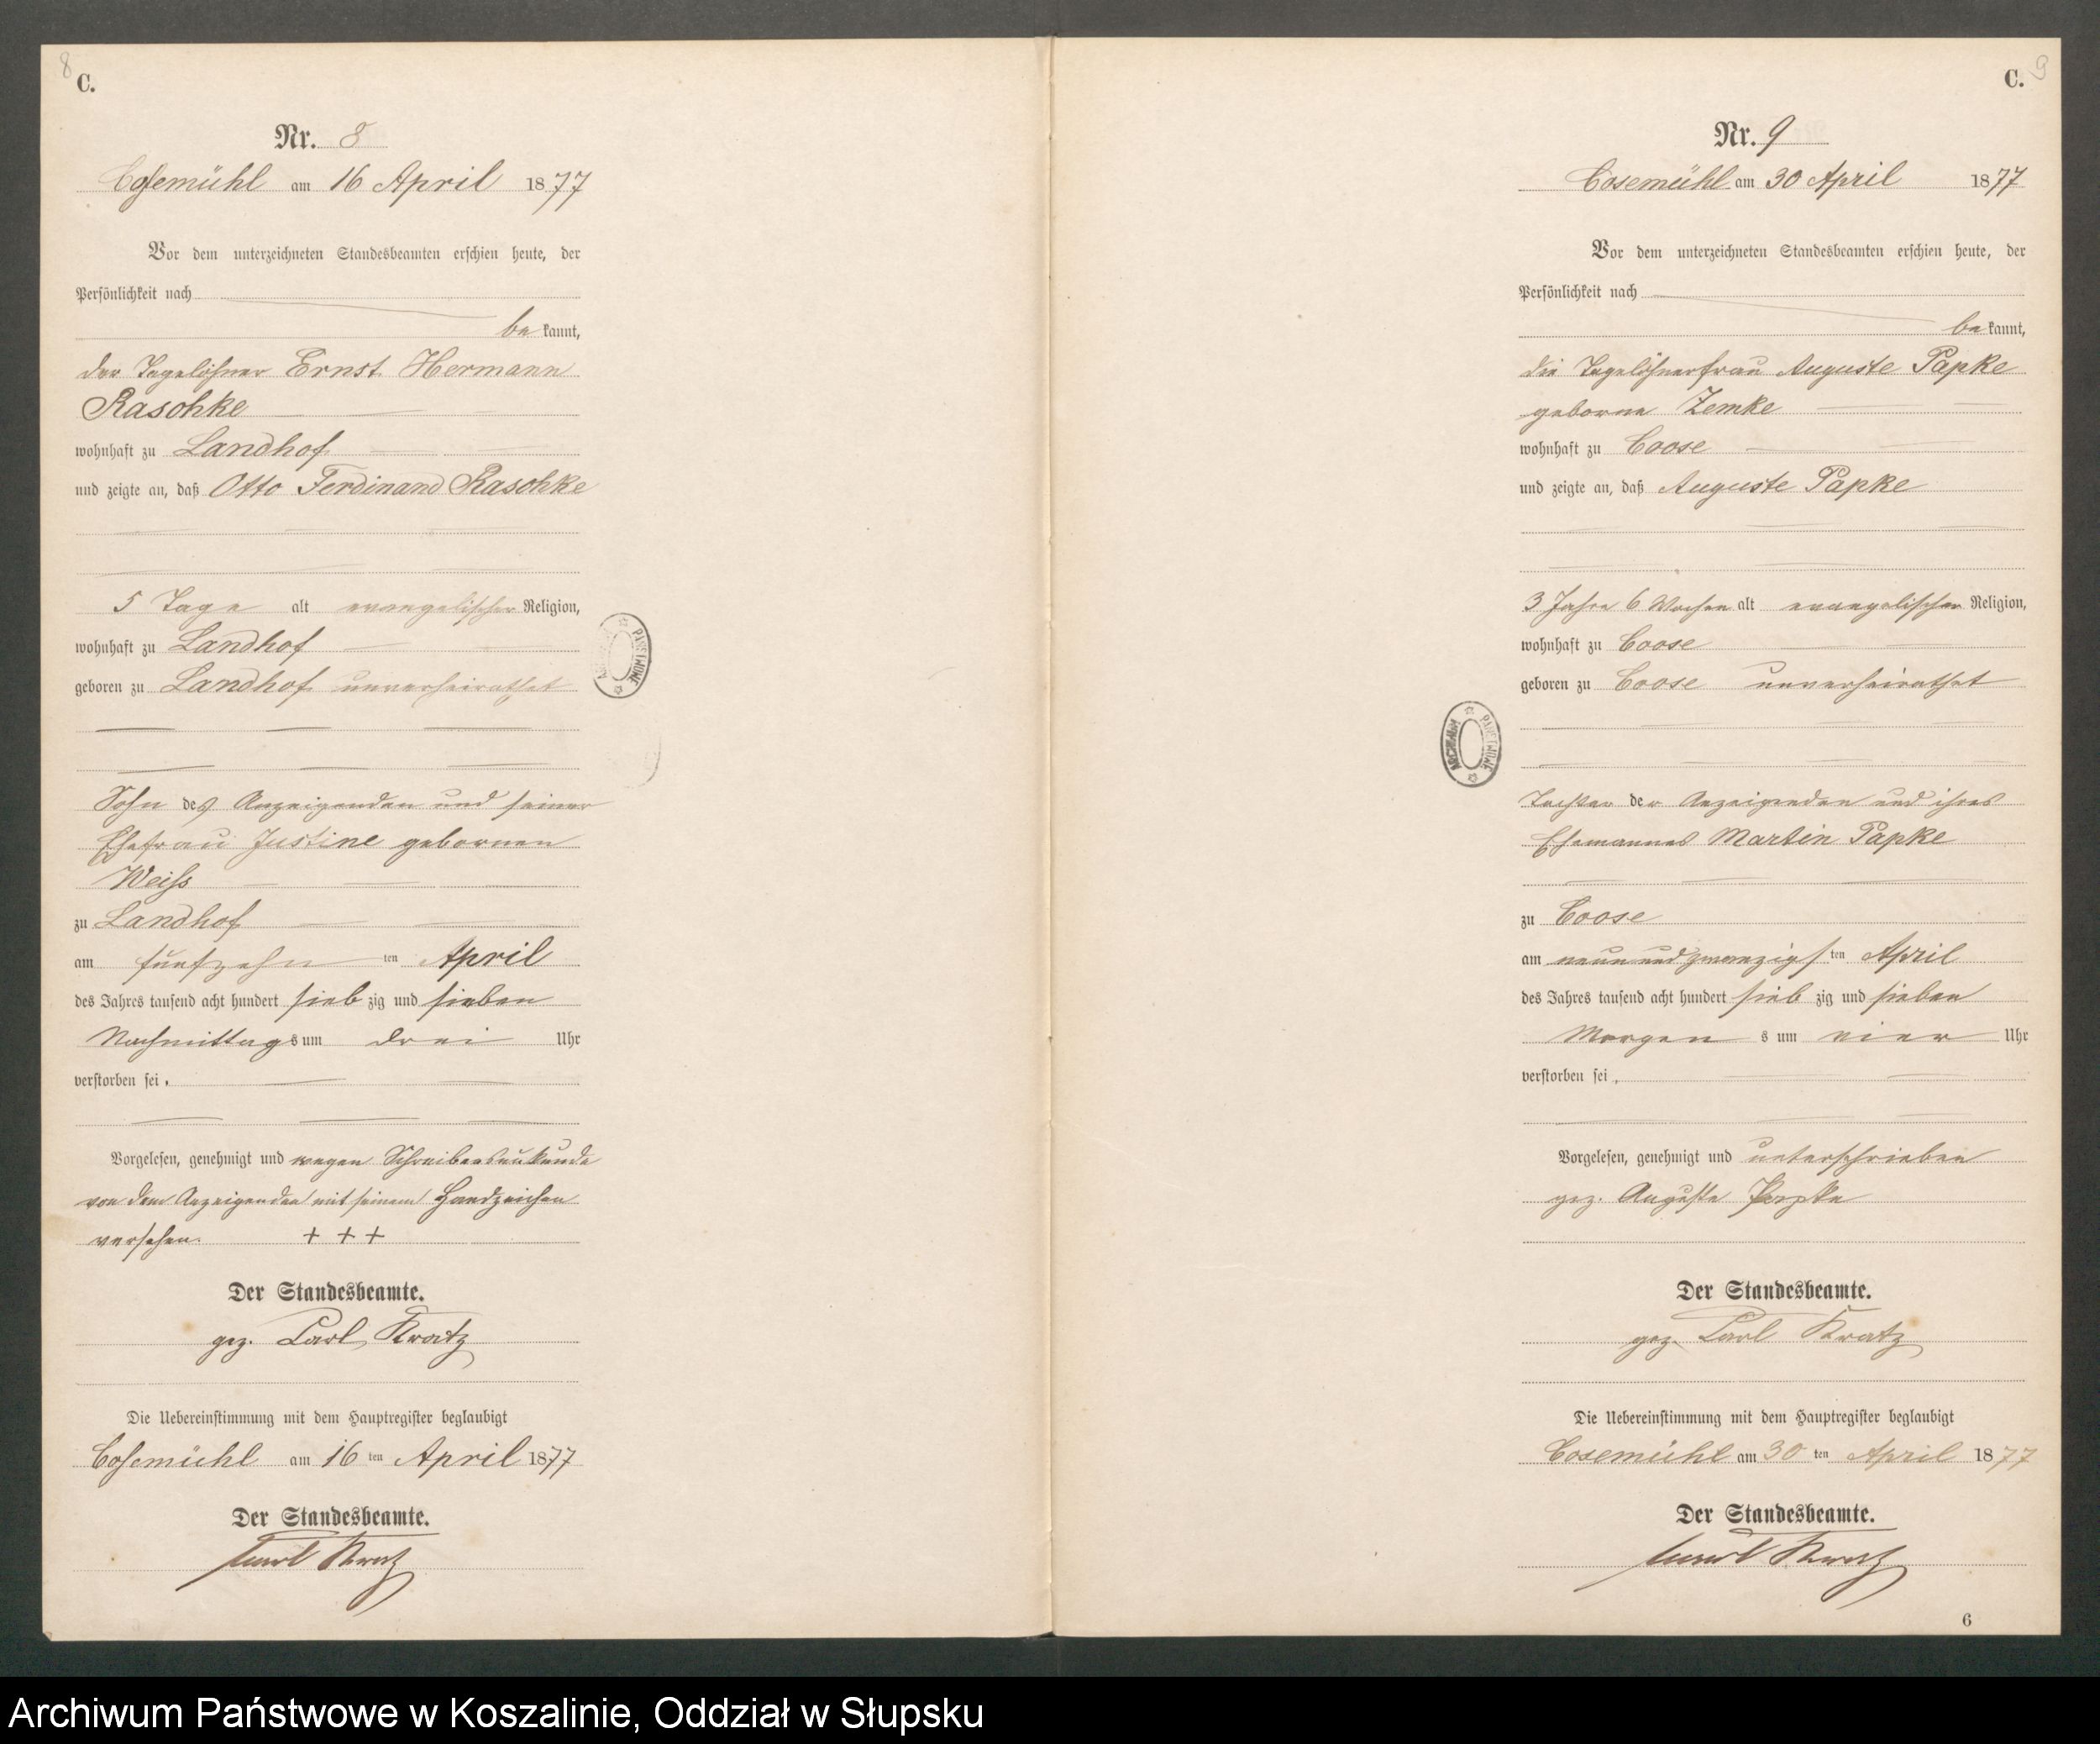 8
C.
Nr. 8
Cosemühl am 16 April 1877
Vor dem unterzeichneten Standesbeamten erschien heute, der
Persönlichkeit nach
be kannt,
der Tagelöhner Ernst Hermann
Raschke
wohnhaft zu Landhof
und zeigte an, daß Otto Ferdinand Raschke
5 Tage alt evangelischer Religion,
wohnhaft zu Landhof
geboren zu Landhof unverheirathet
Sohn des Anzeigenden und seiner
Ehefrau Justine gebornen
Weiss
zu Landhof
am fünfzehn ten April
des Jahres tausend acht hundert sieb zig und sieben
Nachmittags um drei Uhr
verstorben sei.
Vorgelesen, genehmigt und wegen Schreibensunkunde
von dem Anzeigenden mit seinem Handzeichen
versehen. + + +
Der Standesbeamte.
gez. Carl Kratz
Die Uebereinstimmung mit dem Hauptregister beglaubigt
Cosemühl am 16 ten April 1877
Der Standesbeamte.
Carl Kratz
ARCHIWUM PAŃSTWOWE
9
C.
Nr. 9
Cosemühl am 30 April 1877
Vor dem unterzeichneten Standesbeamten erschien heute, der
Persönlichkeit nach
be kannt,
die Tagelöhnerfrau Auguste Papke
geborne Zemke
wohnhaft zu Coose
und zeigte an, daß Auguste Papke
3 Jahre 6 Wochen alt evangelischer Religion,
wohnhaft zu Coose
geboren zu Coose unverheirathet
Tochter der Anzeigenden und ihres
Ehemannes Martin Papke
zu Coose
am neunundzwanzigs ten April
des Jahres tausend acht hundert sieb zig und sieben
Morgen s um vier Uhr
verstorben sei.
Vorgelesen, genehmigt und unterschrieben
gez. Auguste Papke
Der Standesbeamte.
gez. Carl Kratz
Die Uebereinstimmung mit dem Hauptregister beglaubigt
Cosemühl am 30 ten April 1877
Der Standesbeamte.
Carl Kratz
6
ARCHIWUM PAŃSTWOWE
Archiwum Państwowe w Koszalinie, Oddział w Słupsku